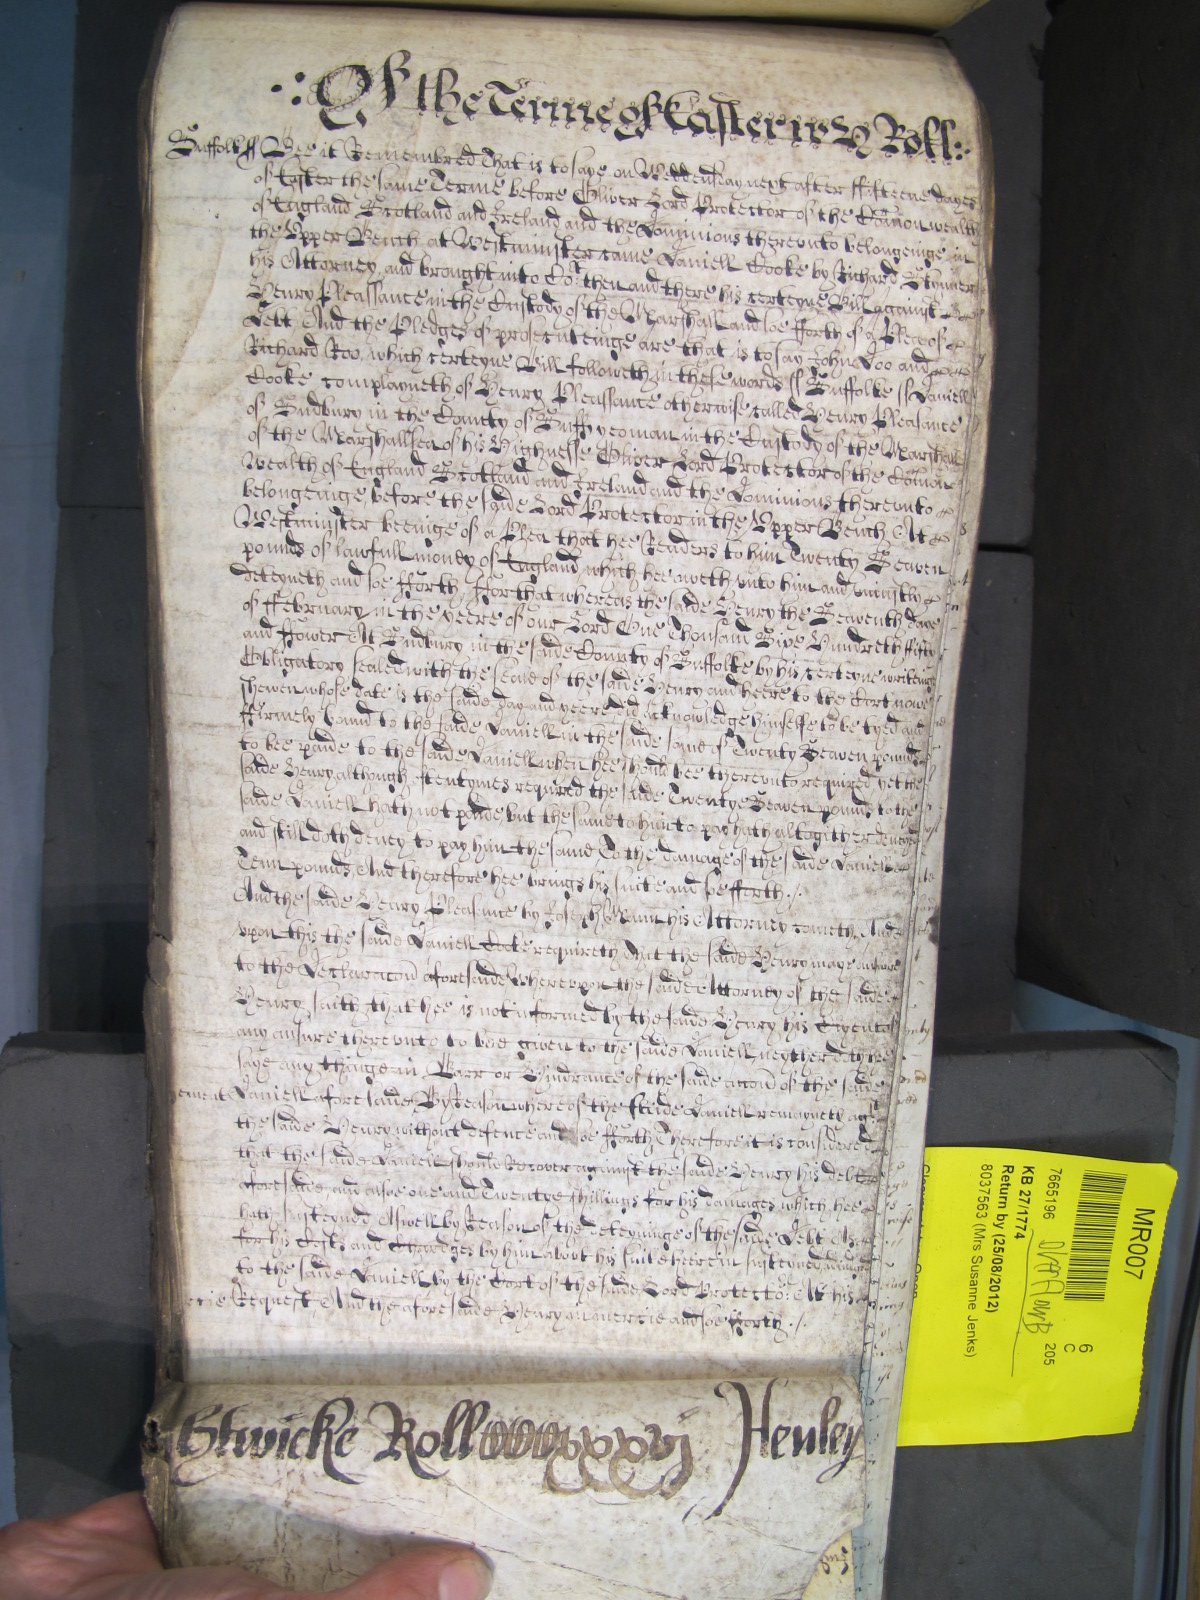 Of the Terme of Easter in y Roll
Suffolk ss Bee it Remembred That is to saye on Weddensday next after ffifteene dayes
of Easter the same Terme before Oliver Lord Protector of the Comon wealth
of England Scotland and Ireland and the Dominions thereunto belongeinge in
the Upper Bench at Westminster came Daniell Cooke by Richard
his Attorney, and brought into Cort then and there his certeyne Bill against
Henry Pleassance in the Custody of the Marshall and soe fforth of a Plea of
Debt And the Pledges of prosecuteinge are that is to say John Doo and
Richard Roo, which certeyne Bill followeth in these words ss Suffolke ss Daniell
Cooke complayneth of Henry Pleassance otherwise called Henry Pleasance
of Sudbury in the County of Suff yeoman in the Custody of the Marshall
of the Marshallsea of his Highnesse Oliver Lord Protector of the Comon
Wealth of England Scotland and Ireland and the Dominions thereunto
belongeinge before the saide Lord Protector in the Upper Bench At
Westminster beeinge of a Plea that hee Renders to him Twenty Seaven
pounds of lawfull money of England which hee oweth unto him and uniustly
deteyneth and soe fforth, ffor that whereas the saide Henry the Seaventh daye
of ffebruary in the yeere of our Lord One Thousand Sixe Hundreth ffifty
and ffower At Sudbury in the saide County of Suffolke by his certeyne writeinge
Obligatory sealed with the seale of the saide Henry and heere to the Cort nowe
shewen whose date is the saide day and yeere did Acknowledge himselfe to be tyed and
ffirmely bound to the saide Daniell in the saide some of Twenty Seaven pounds
to bee paide to the saide Daniell when hee should bee thereunto required yet the
saide Henry, although oftentymes required the saide Twentye Seaven pounds to the
saide Daniell hath not paide, but the same to him to pay hath altogither denyed
and still doth deney to pay him the same To the damage of the saide Daniell
Tenn pounds, And therefore hee brings his suite and soe fforth ./.
And the saide Henry Pleasance by Joseph Mann his Attorney cometh, And
upon this the saide Daniell Cooke requireth that the saide Henry maye answre
to the Declaracon aforesaide Whereupon the saide Attorney of the saide
Henry saith that hee is not informed by the saide Henry his Clyent of
any answre thereunto to bee given to the saide Daniell, neyther doth hee
saye any thinge in Barr or Hindrance of the saide accon of the saide
Daniell aforesaide By Reason whereof the saide Daniell remayneth agt
the saide Henry without defence and soe fforth Therefore it is considered
that the saide Daniell should Recover against the saide Henry his debt
aforesaide, and alsoe one and Twentye shillings for his damages which hee
hath susteyned Aswell by Reason of the deteyninge of the saide Debt As
for his Costs and Chardges by him about his suite herein susteyned
to the saide Daniell by the Cort of the saide Lord Protector At his
Request And the aforesaide Henry in mercie and soe fforth ./.
Roll Henley
MR007
7665196
6
C
205
KB 27/1774
Return by (25/08/2012)
8037563 (Mrs Susanne Jenks)